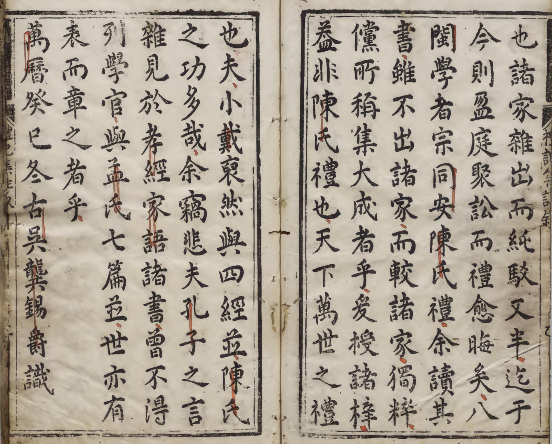 也諸家雜出而純駁又半迄于
今則盈庭聚訟而禮愈晦矣八
閩學者宗同安陳氏禮余讀其
書雖不出諸家而較諸家獨粹
儻所稱集大成者乎爰授諸梓
益非陳氏禮也天下萬世之禮
也夫小戴裒然與四經並陳氏
之功多哉余竊悲夫孔子之言
雜見於孝經家語諸書曾不得
列學官與孟氏七篇並世亦有
表而章之者乎
萬曆癸巳冬古吳龔錫爵識